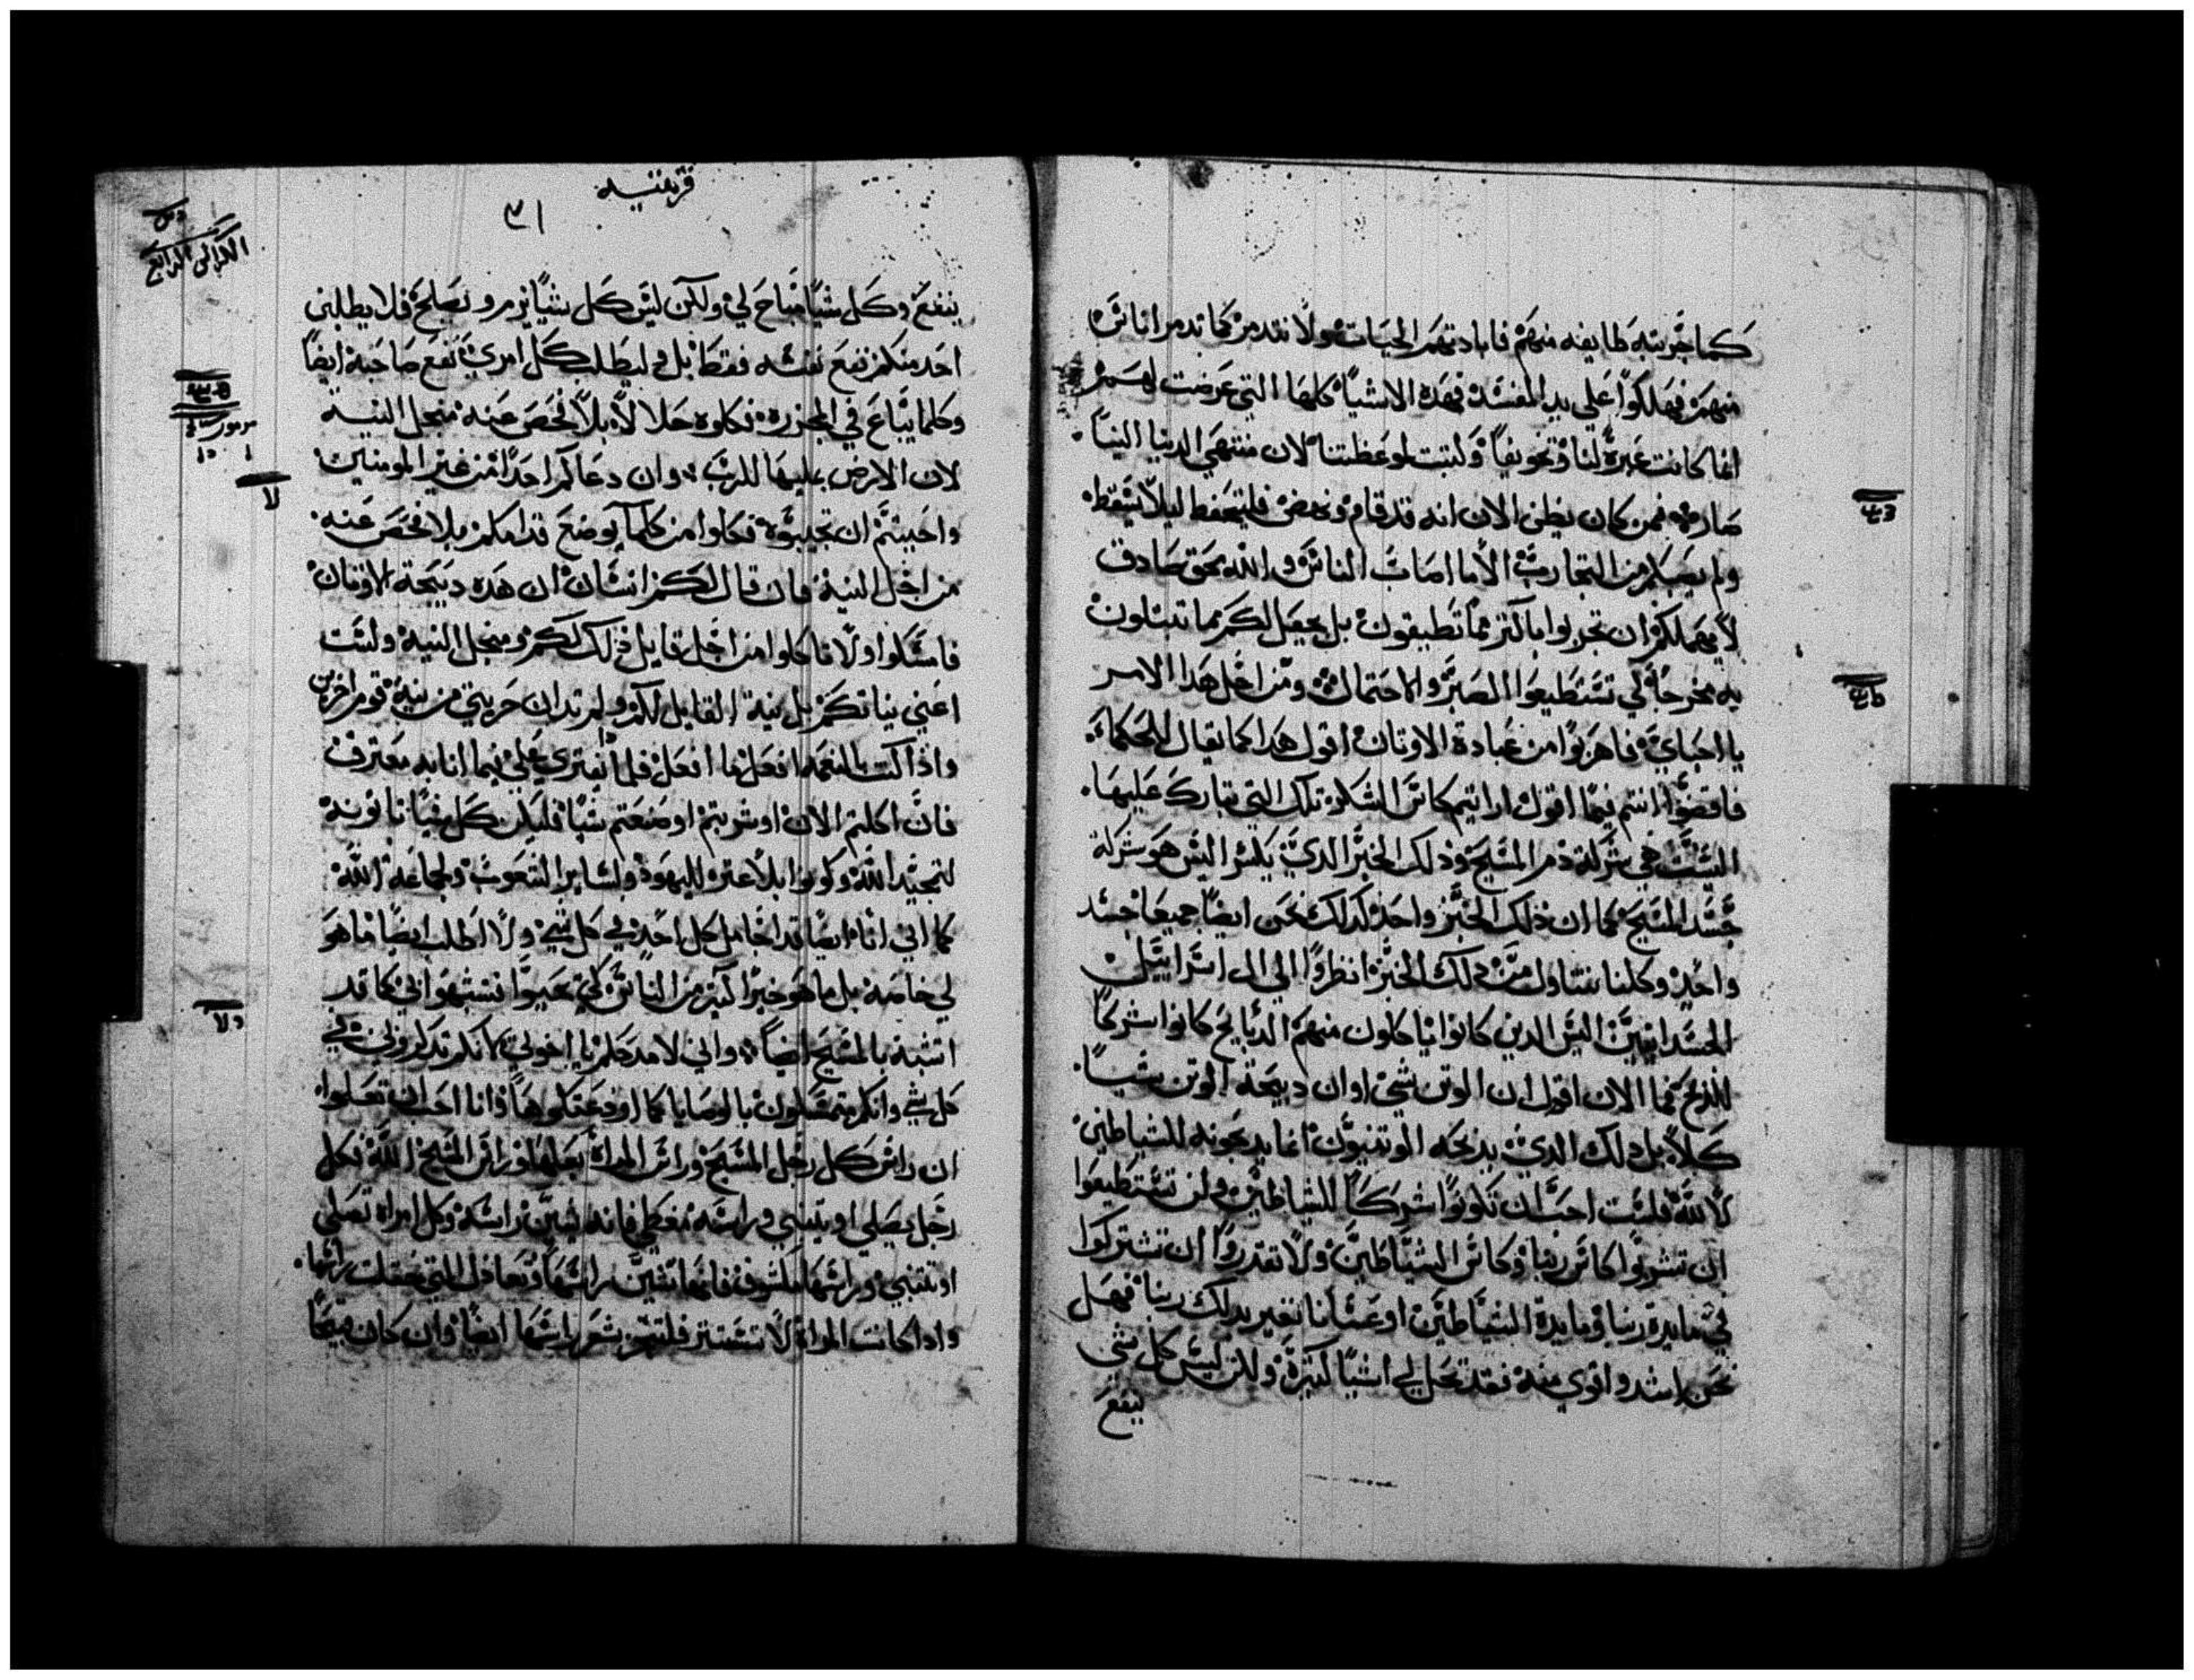 كما جربته طايفه منهم فابادتهم الحيات ولا نتدمر كما تدمر اناس
منهم فهلكوا علي يد المفسد فهده الاشيا كلها التي عرضت لهم
انما كانت عبرة لنا وتخويفا وكتبت لموعظتنا لان منتهي الدنيا الينا
صاره فمن كان يظن الان انه قد قام ونهض فليتحفظ ليلا يسقط
ولم يصبكم من التجارب الا ما اصاب الناس والله محق صادق
لا يهملكم ان تجربوا باكتر مما تطيقون بل يجعل لكم مما تبتلون
به مخرجا لكي تستطيعوا الصبر والاحتمال ومن اجل هدا الامر
يا احباي فاهربوا من عبادة الاوتان اقول هدا كما يقال للحكما
فاقضوا انتم فيما اقول ارايتم كاس الشكر تلك التي تبارك عليها
اليست هي شركة دم المسيح وذلك الخبز الدي يكسر اليس هو شركة
جسد المسيح كما ان ذلك الخبز واحد كدلك نحن ايضا جميعا جسد
واحد وكلنا نتناول من دلك الخبز انظروا الي ال اسراييل
الجسدانيين اليس الدين كانوا ياكلون منهم الدبايح كانوا شركا
للمدبح فما الان اقول ان الوتن شي او ان دبيحة الوتن شيا
كلا بل دلك الدي يدبحه الوتنيون انما يدبحونه للشياطين
لا لله فلست احب ان تكونوا شركا للشياطين ولن تستطيعوا
ان تشربوا كاس ربنا وكاس الشياطين ولا تقدروا ان تشتركوا
في مايدة ربنا ومايدة الشياطين او عسانا نغير بدلك ربنا فهل
نحن اشد واقوي منه فقد تحل لي اشيا كتيرة ولكن ليس كل شي
ينفع
قرنتيه
٣١
الكراس الرابع
ينفع وكل شيا مباح لي ولكن ليس كل شيا يزم ويصلح فلا يطلبن
احد منكم نفع نفسه فقط بل وليطلب كل امري نفع صاحبه ايضا
وكلما يباع في المجزره فكلوه حلالا بلا فحص عنه منجل النية
لان الارض بمليها للرب وان دعاكم احدا من غير المومنين
واحببتم ان تجيبوه فكلوا من كلما يوضع قدامكم بلا فحص عنه
من اجل النية فان قال لكم انسان ان هده دبيحة الاوتان
فامسكوا ولا تاكلوا من اجل قايل ذلك لكم ومنجل النية ولست
اعني نياتكم بل نية القايل لكم ولم تدان حريتي من نية قوم اخرين
واذا كنت بالنعمه افعل ما افعل فلما يفتري علي فيما انا به معترف
فان اكلتم الان او شربتم او صنعتم شيا فليكن كل شيا تاتونه
لتمجيد الله وكونوا بلا عتره لليهود ولساير الشعوب ولجماعة الله
كما اني انا ايضا قد اجامل كل احد في كل شي ولا اطلب ايضا ما هو
لي خاصة بل ما هو خيرا لكتير من الناس لكي يحيوا تشبهوا بي كما قد
اتشبه بالمسيح ايضا واني لامدحكم يا اخوتي لانكم تدكروني في
كل شي وانكم متمسكون بالوصايا كما اودعتكموها وانا احب ان تعلموا
ان راس كل رجل المسيح وراس المراة بعلها وراس المسيح الله فكل
رجل يصلي او يتنبي وراسه مغطي فانه يشين راسه وكل امراة تصلي
او تتنبي وراسها مكشوف فانها تشين راسها وتعادل التي حلقت راسها
وادا كانت المراة لا تستتر فلتجز شعر راسها ايضا وان كان قبيحا